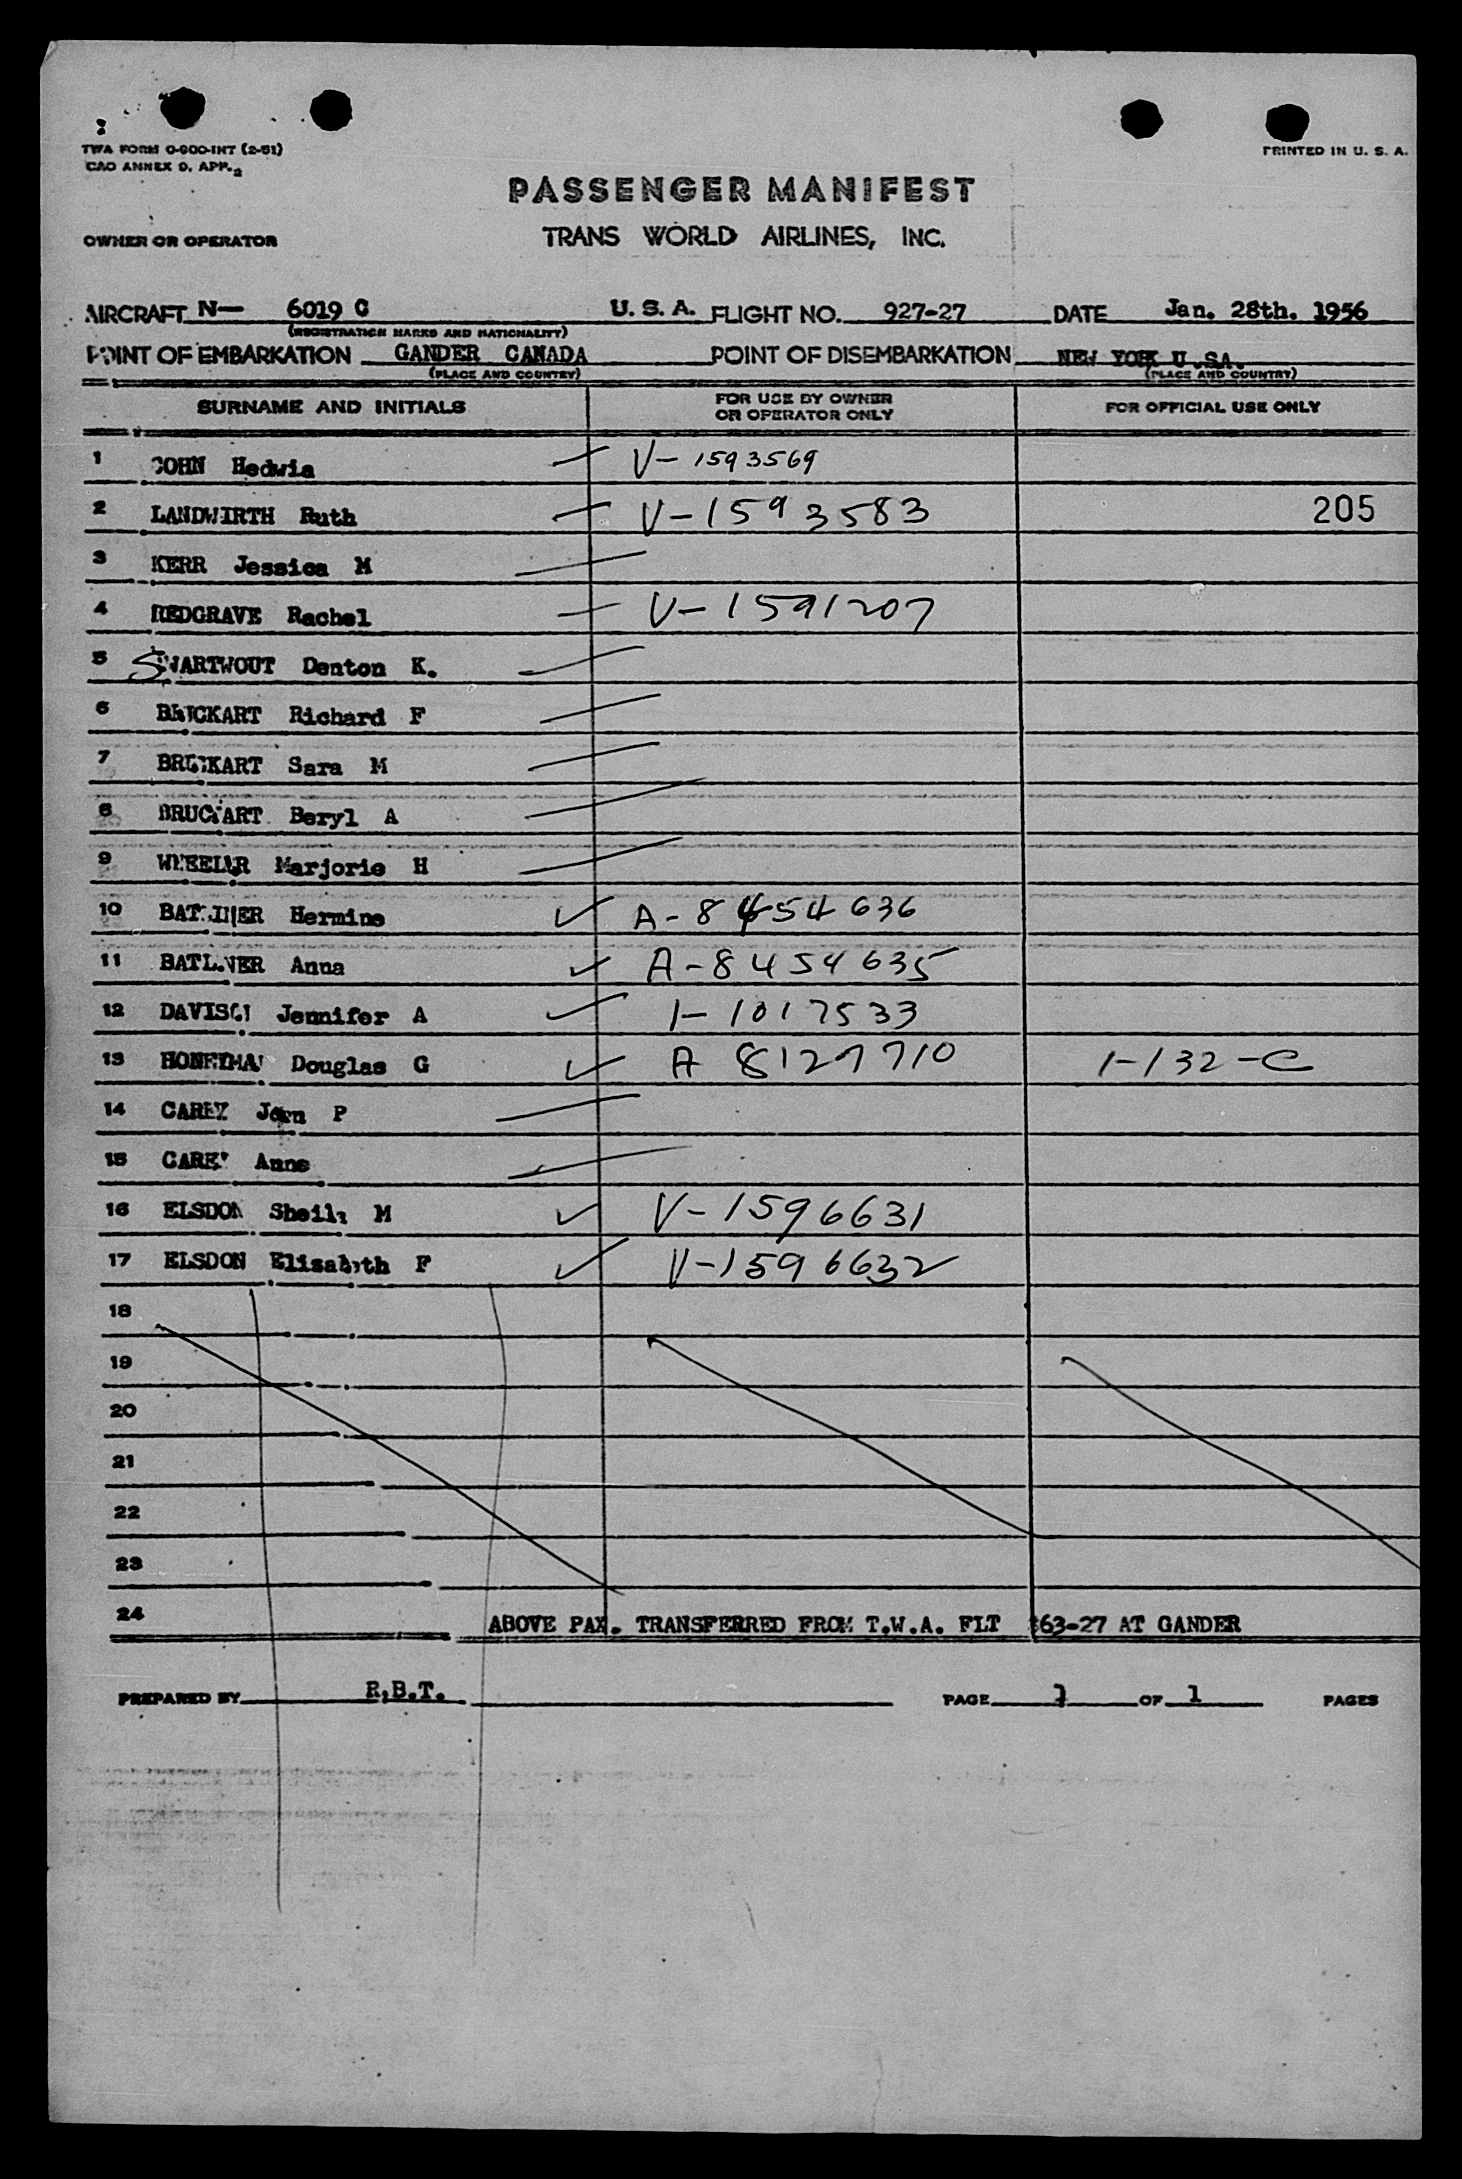 TWA FORM O-900-INT (2-51)
CAO ANNEX 9, APP. 2
PRINTED IN U. S. A.
PASSENGER MANIFEST
OWNER OR OPERATOR TRANS WORLD AIRLINES, INC.
AIRCRAFT N— 6019 C U. S. A. FLIGHT NO. 927-27 DATE Jan. 28th. 1956
(REGISTRATION MARKS AND NATIONALITY)
POINT OF EMBARKATION GANDER CANADA POINT OF DISEMBARKATION NEW YORK U.SA.
(PLACE AND COUNTRY) (PLACE AND COUNTRY)
SURNAME AND INITIALS FOR USE BY OWNER OR OPERATOR ONLY FOR OFFICIAL USE ONLY
1 COHN Hedwia V-1593569
2 LANDWIRTH Ruth V-1593583 205
3 KERR Jessica M
4 REDGRAVE Rachel V-1591207
5 SWARTWOUT Denton K.
6 Richard F
7 BRUCKART Sara M
8 BRUCKART Beryl A
9 WHEELER Marjorie H
10 Hermine A-8454636
11 Anna A-8454635
12 DAVISON Jennifer A 1-1017533
13 HONEYMAN Douglas G A 8127710 1-132-C
14 CAREY John P
15 CAREY Anne
16 ELSDON Sheila M V-1596631
17 ELSDON Elisabeth F V-1596632
18
19
20
21
22
23
24 ABOVE PAX. TRANSFERRED FROM T.W.A. FLT 63-27 AT GANDER
PREPARED BY R.B.T. PAGE 1 OF 1 PAGES